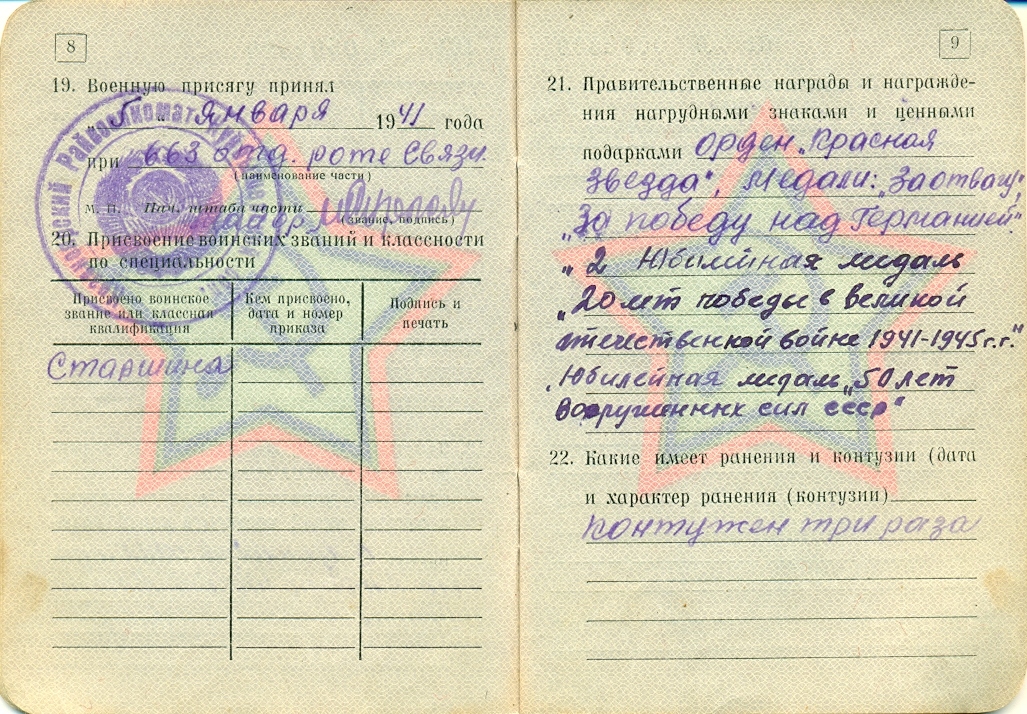 8
19. Военную присягу принял
„5“ января 1941 года
при 663 отд. роте Связи.
(наименование части)
М. П. Нач. штаба части
(звание, подпись)
20. Присвоение воинских званий и классности
по специальности
Присвоено воинское звание или классная квалификация
Кем присвоено, дата и номер приказа
Подпись и печать
Старшина
9
21. Правительственные награды и награжде-
ния нагрудными знаками и ценными
подарками орден „Красная
Звезда“, Медали: За отвагу“
„За победу над Германией“.
„2 Юбилейная медаль
„20 лет победы в великой
отечественной войне 1941-1945 г.г.“
Юбилейная медаль „50 лет
вооруженных сил ссср“
22. Какие имеет ранения и контузии (дата
и характер ранения (контузии)
контужен три раза